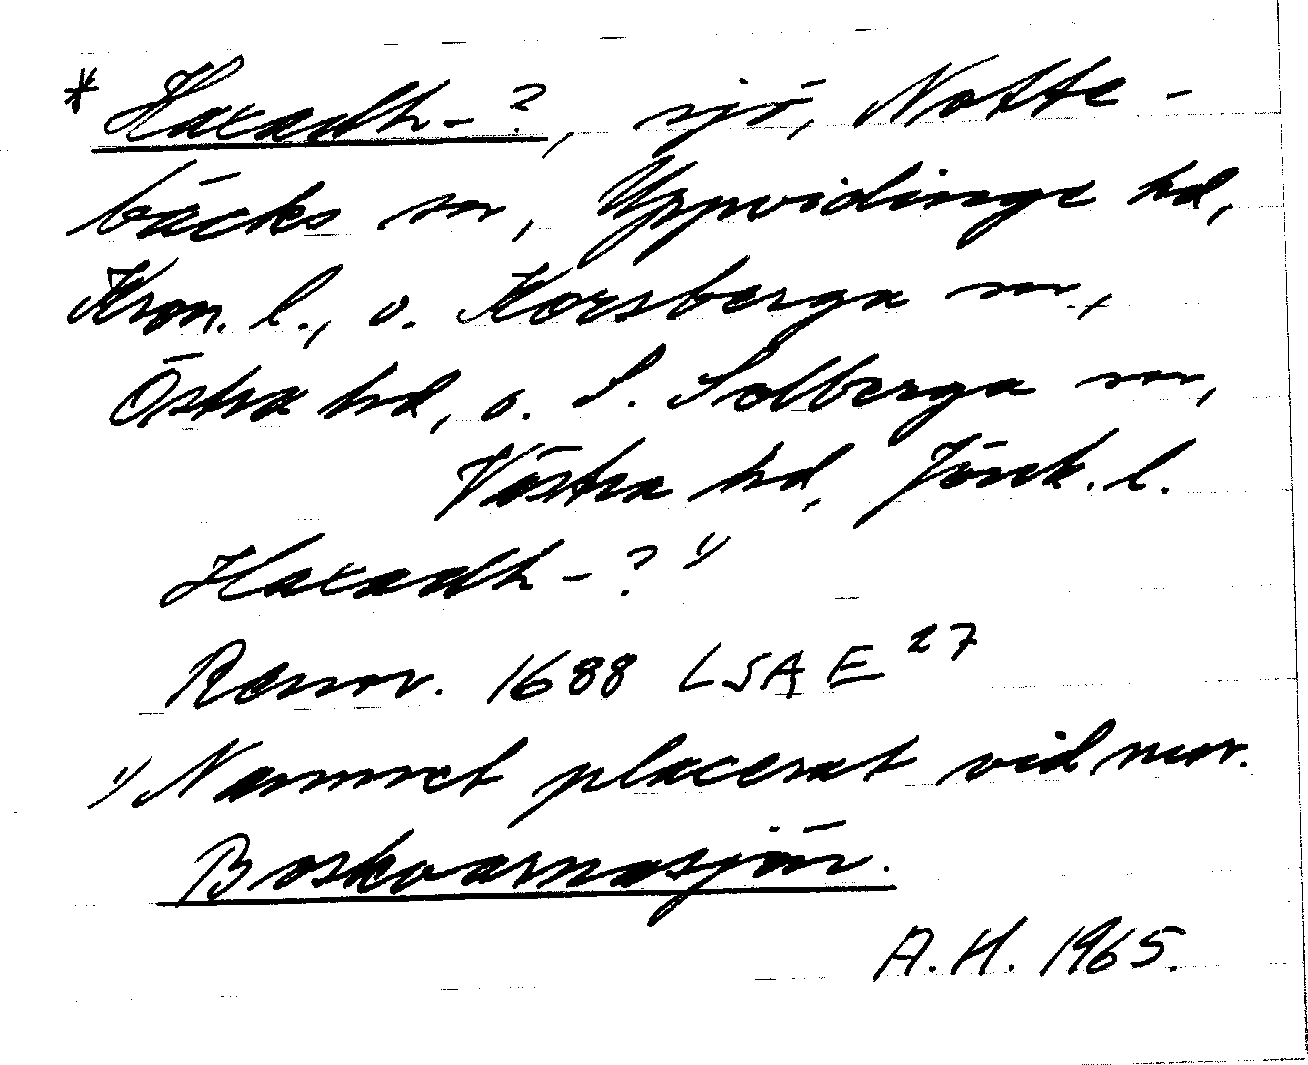 * Haxadh-?, sjö, Notte-
bäcks sn, Uppvidinge hd,
Kron. l., o. Korsberga sn,
Östra hd, o. S. Solberga sn,
Västra hd, Jönk. l.
Haxadh-? 1)
Renov. 1688 LSA E 27
1) Namnet placerat vid nuv.
Boskvarnasjön.
A. H. 1965.